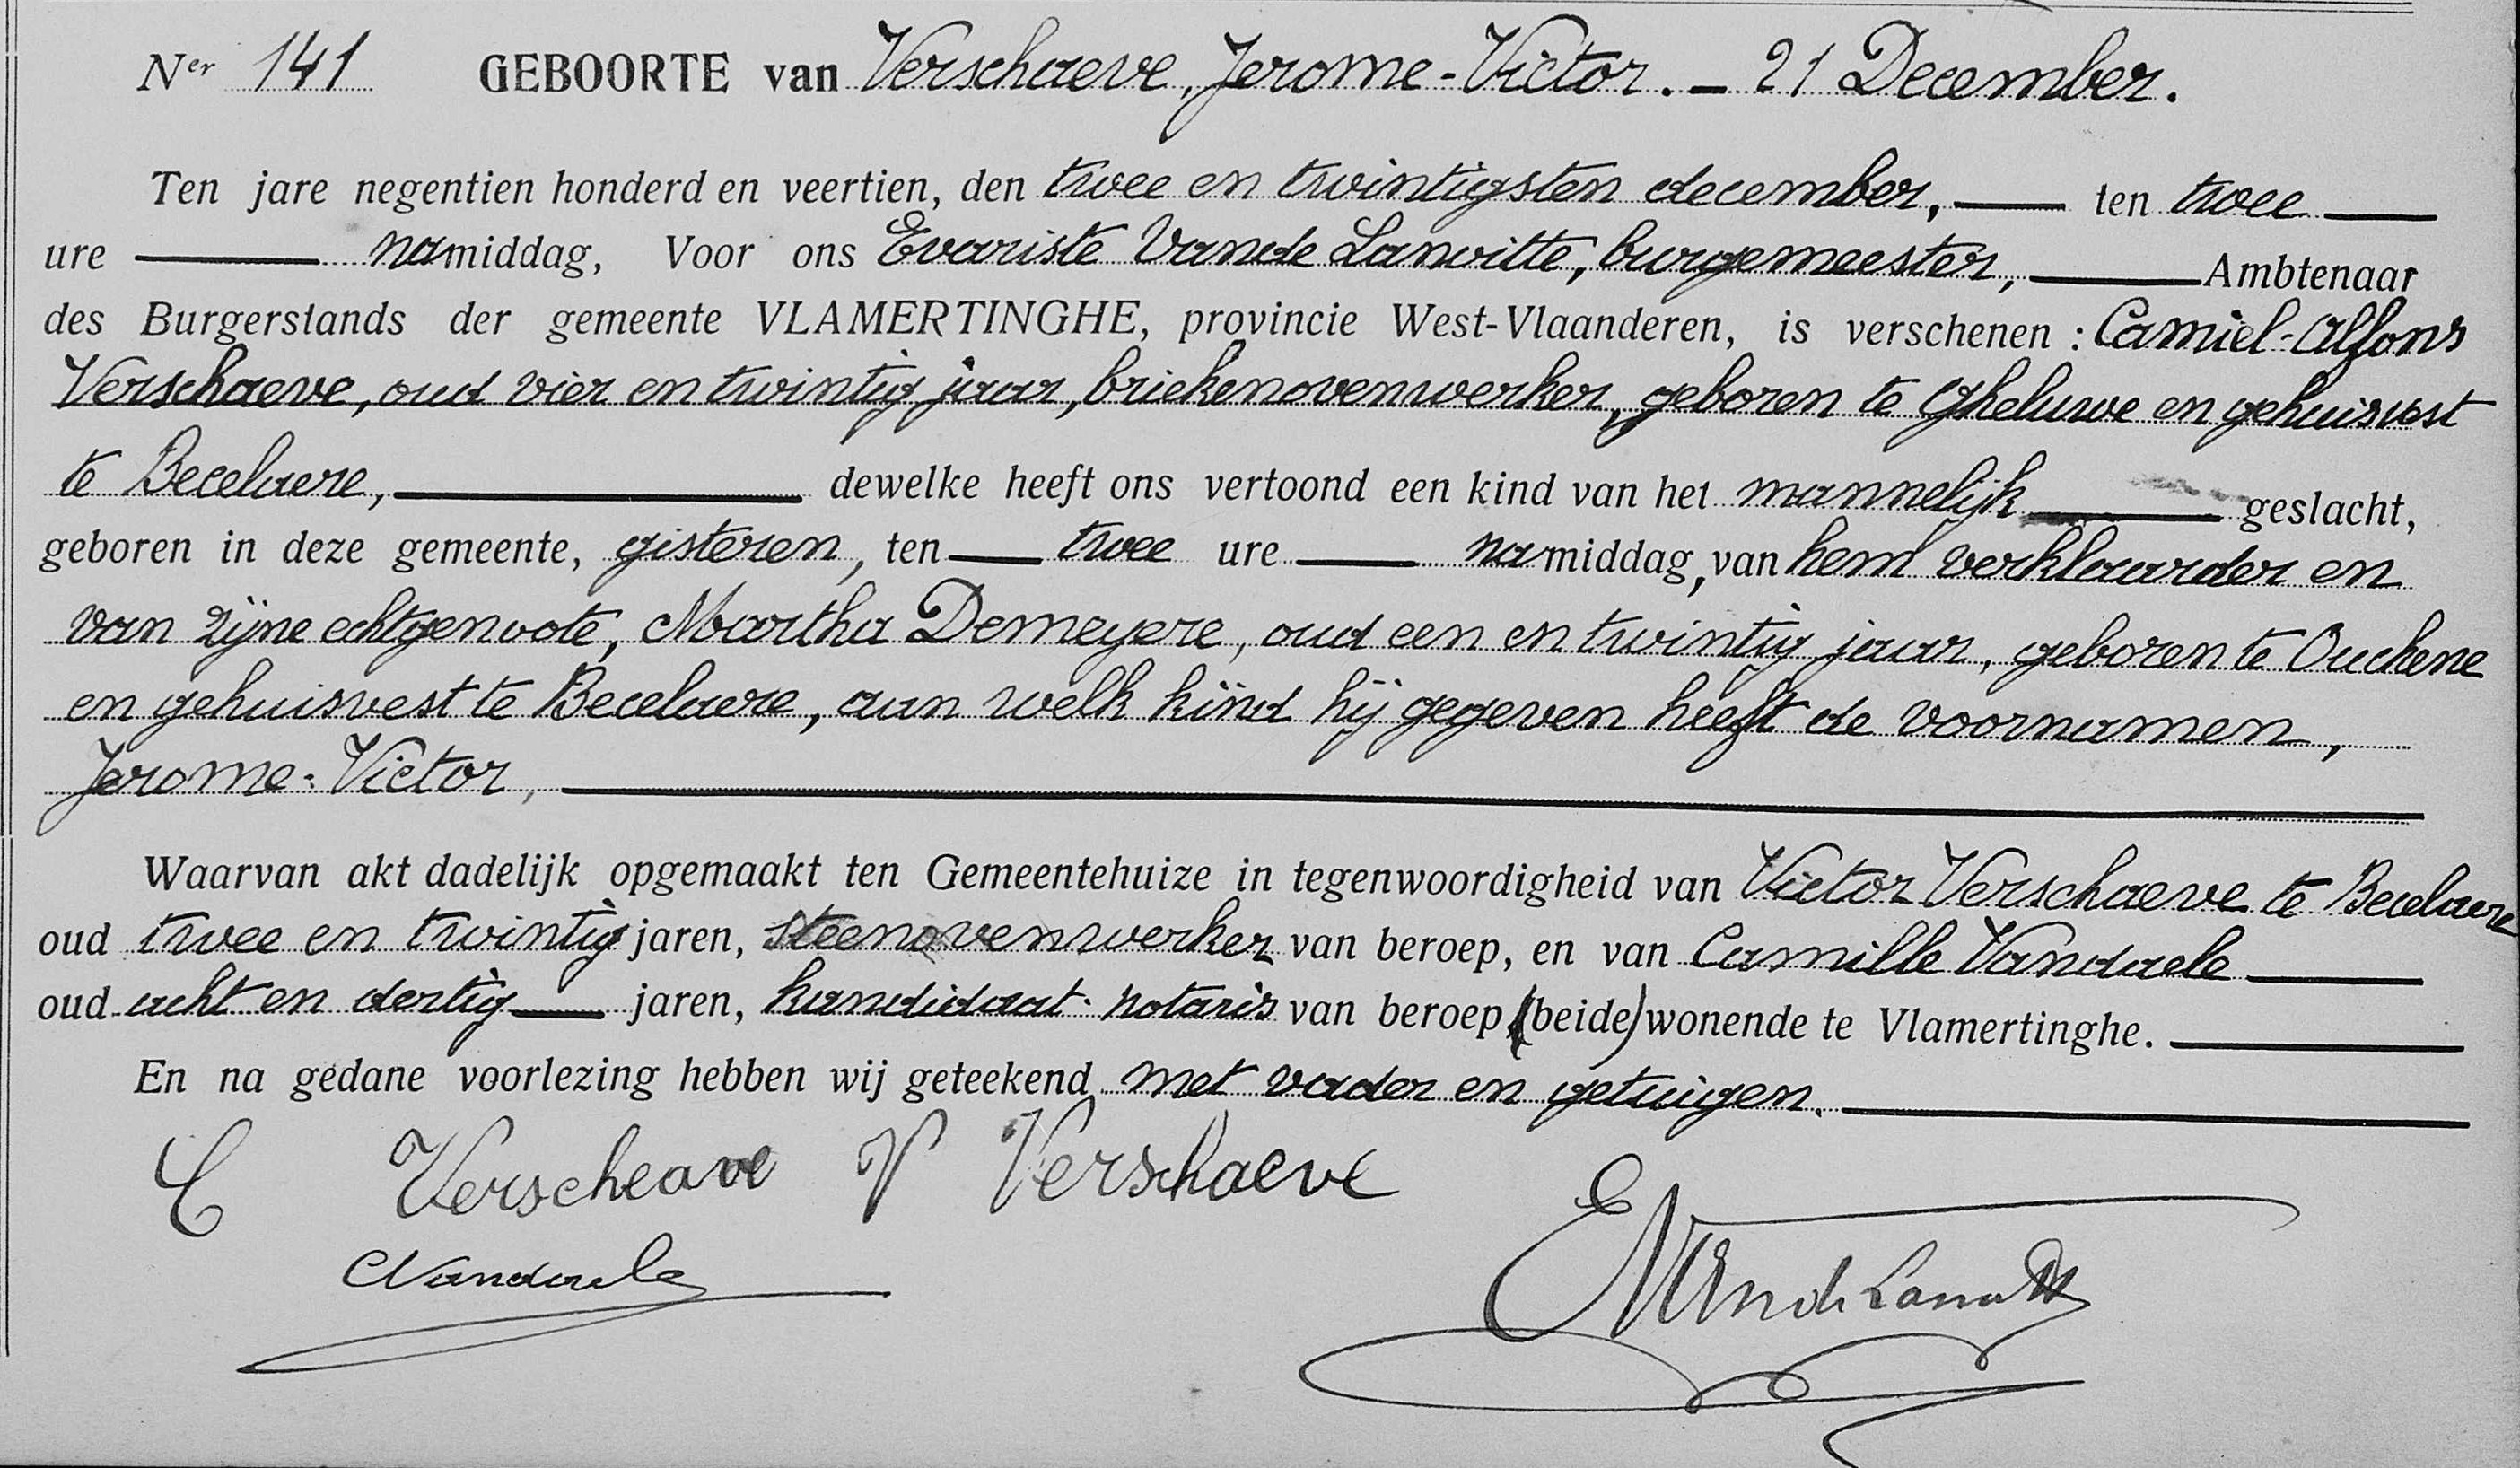 Ner 141 GEBOORTE van Verschaeve, Jerome-Victor. — 21 December.
Ten jare negentien honderd en veertien, den twee en twintigsten december, — ten twee —
ure — namiddag, Voor ons Evariste Vande Lanoitte, burgemeester, — Ambtenaar
des Burgerstands der gemeente VLAMERTINGHE, provincie West-Vlaanderen, is verschenen : Camiel-Alfons
Verschaeve, oud vier en twintig jaar, briekenovenwerker, geboren te Gheluwe en gehuisvest
te Becelaere, — dewelke heeft ons vertoond een kind van het mannelijk — geslacht,
geboren in deze gemeente, gisteren, ten — twee ure — namiddag, van hem verklaarder en
van zijne echtgenoote, Martha Demeyere, oud een en twintig jaar, geboren te Ouckene
en gehuisvest te Becelaere, aan welk kind hij gegeven heeft de voornamen,
Jerome-Victor, —
Waarvan akt dadelijk opgemaakt ten Gemeentehuize in tegenwoordigheid van Victor Verschaeve te Becelaere
oud twee en twintig jaren, steenovenwerker van beroep, en van Camille Vandaele —
oud acht en dertig — jaren, kandidaat-notaris van beroep (beide) wonende te Vlamertinghe. —
En na gedane voorlezing hebben wij geteekend met vader en getuigen. —
C Verscheave V Verschaeve
CVandaele